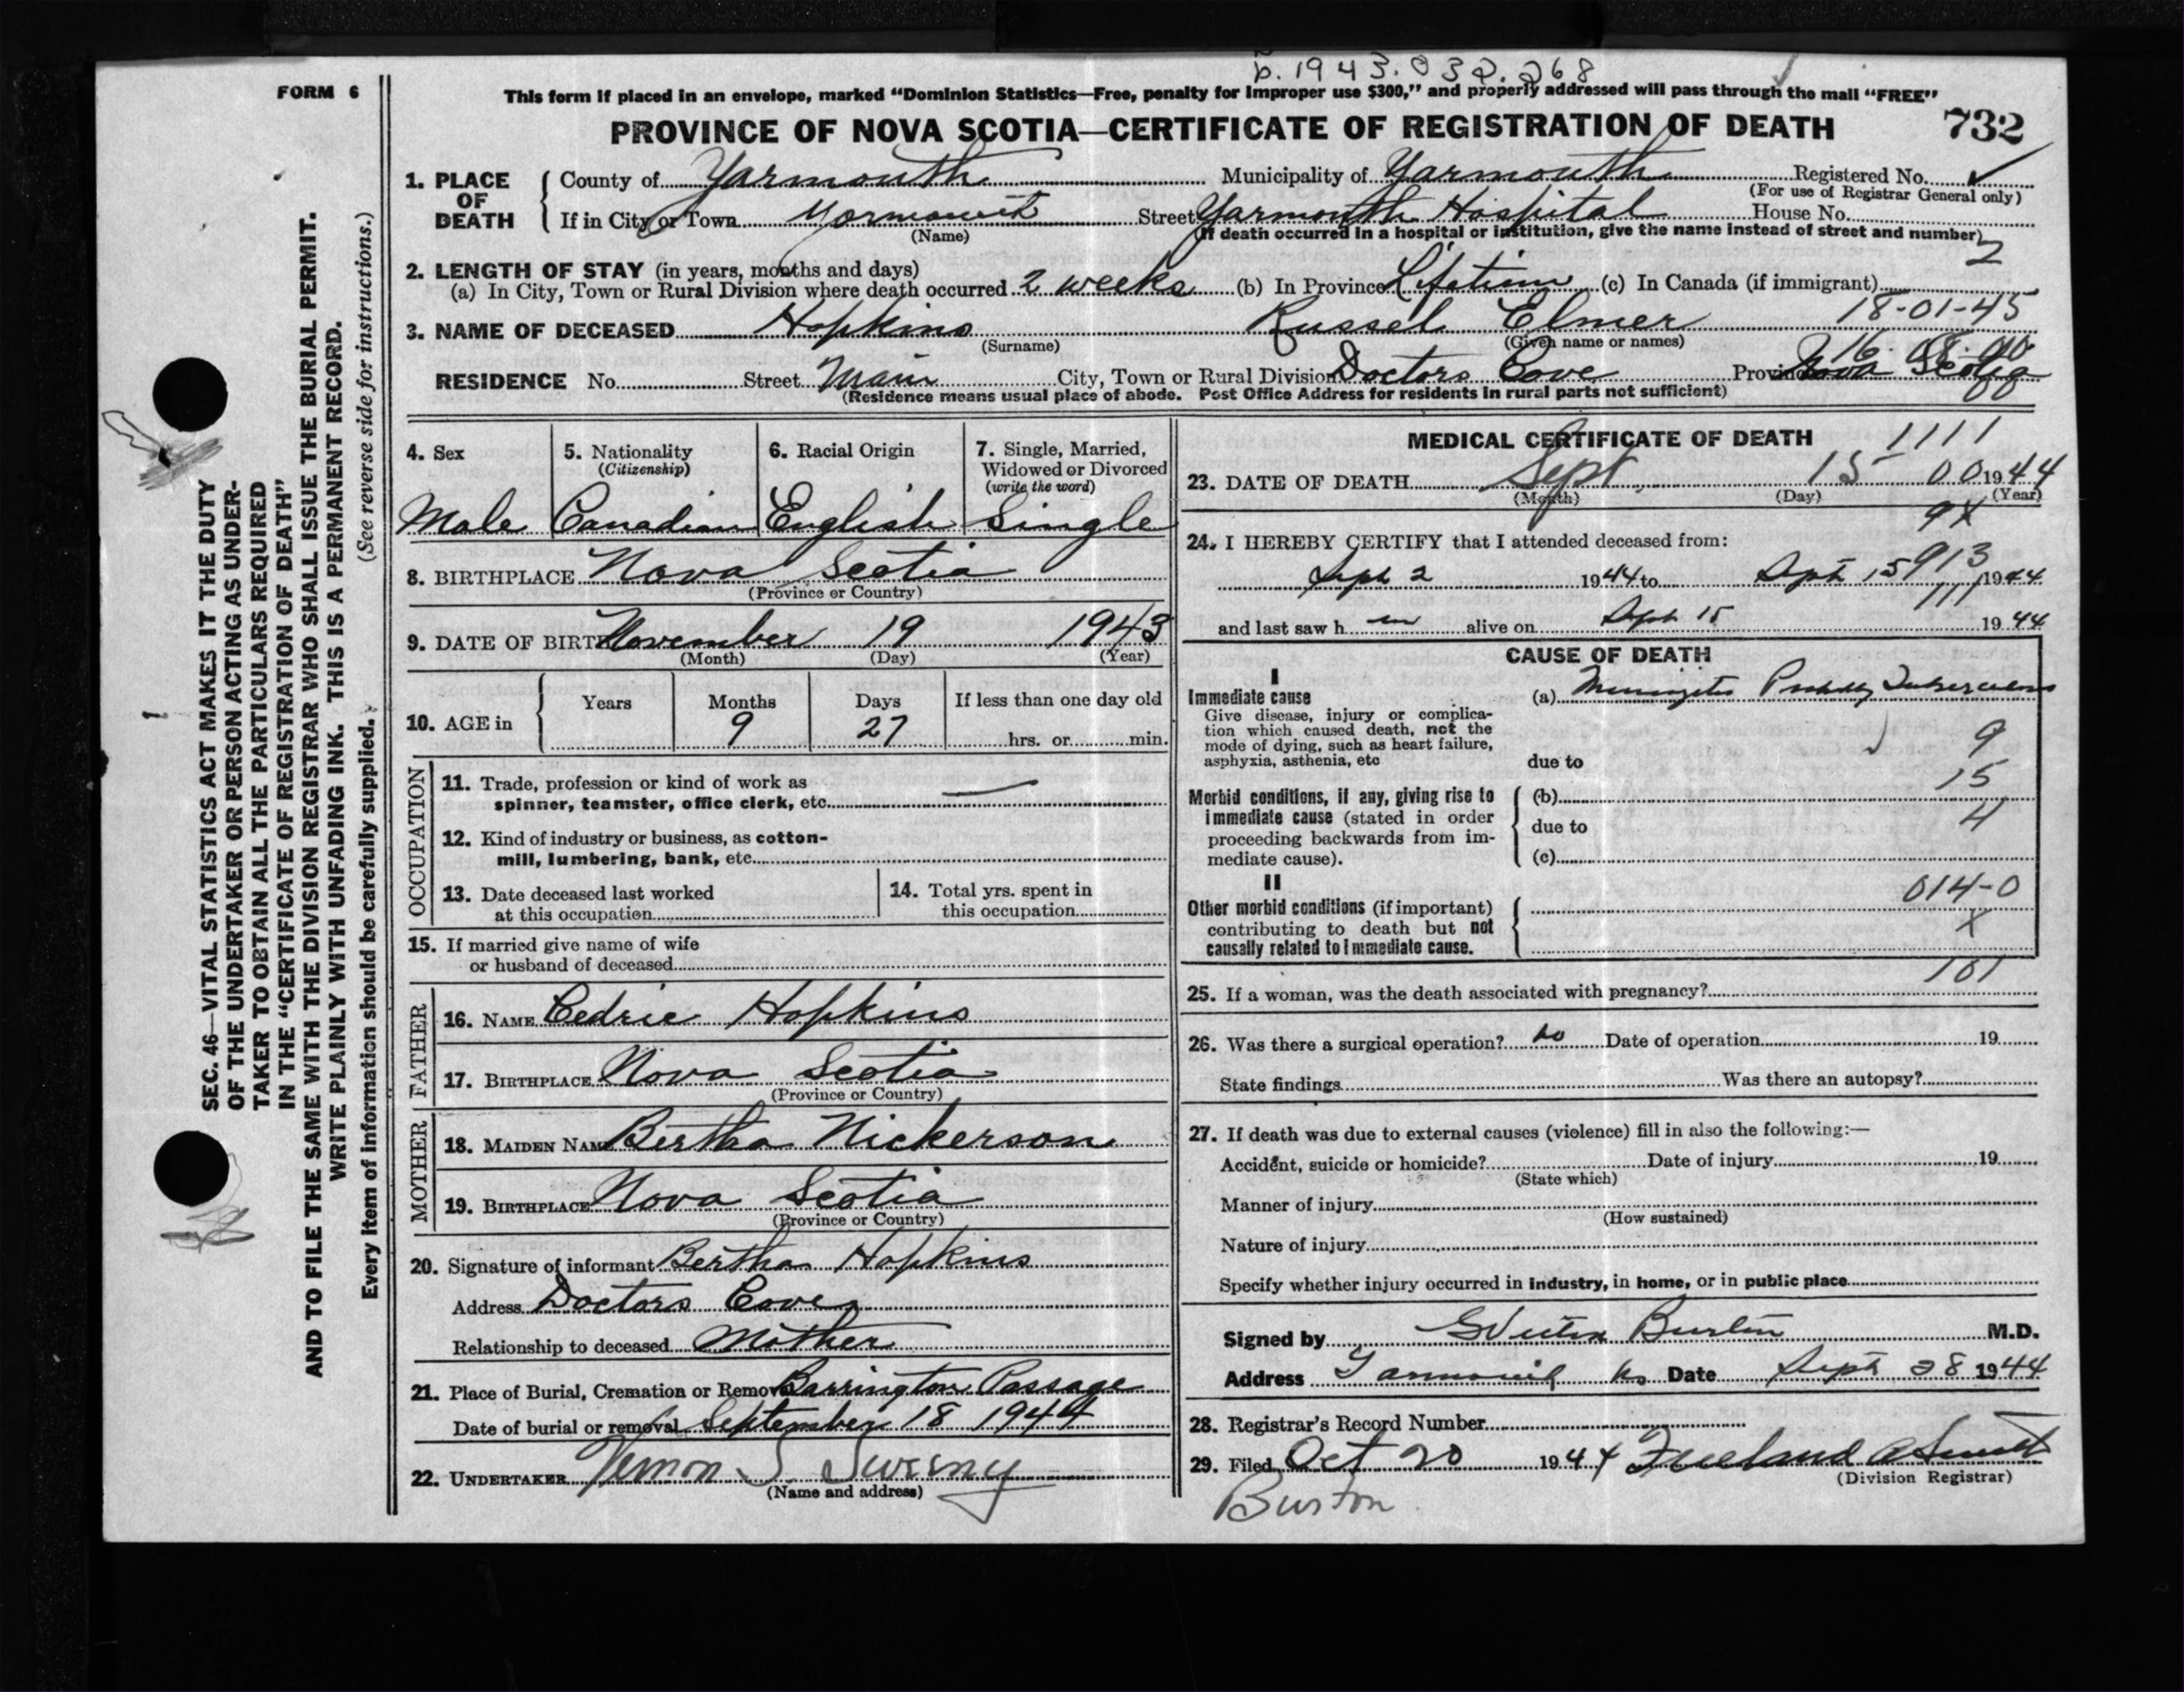 b. 1943.032.268
FORM 6
This form if placed in an envelope, marked “Dominion Statistics—Free, penalty for improper use $300,” and properly addressed will pass through the mail “FREE”
PROVINCE OF NOVA SCOTIA—CERTIFICATE OF REGISTRATION OF DEATH 732
SEC. 46—VITAL STATISTICS ACT MAKES IT THE DUTY
OF THE UNDERTAKER OR PERSON ACTING AS UNDER-
TAKER TO OBTAIN ALL THE PARTICULARS REQUIRED
IN THE “CERTIFICATE OF REGISTRATION OF DEATH”
AND TO FILE THE SAME WITH THE DIVISION REGISTRAR WHO SHALL ISSUE THE BURIAL PERMIT.
WRITE PLAINLY WITH UNFADING INK. THIS IS A PERMANENT RECORD.
Every item of information should be carefully supplied. (See reverse side for instructions.)
1. PLACE OF DEATH
County of Yarmouth Municipality of Yarmouth Registered No.
(For use of Registrar General only)
If in City or Town Yarmouth Street Yarmouth Hospital House No.
(Name) (If death occurred in a hospital or institution, give the name instead of street and number)
2
2. LENGTH OF STAY (in years, months and days)
(a) In City, Town or Rural Division where death occurred 2 weeks (b) In Province Lifetime (c) In Canada (if immigrant)
18-01-45
3. NAME OF DECEASED Hopkins Russel Elmer
(Surname) (Given name or names)
RESIDENCE No. Street Main City, Town or Rural Division Doctors Cove Province Nova Scotia
(Residence means usual place of abode. Post Office Address for residents in rural parts not sufficient)
4. Sex
Male
5. Nationality
(Citizenship)
Canadian
6. Racial Origin
English
7. Single, Married,
Widowed or Divorced
(write the word)
Single
8. BIRTHPLACE Nova Scotia
(Province or Country)
9. DATE OF BIRTH November 19 1943
(Month) (Day) (Year)
10. AGE in
Years Months Days If less than one day old
9 27 hrs. or min.
OCCUPATION
11. Trade, profession or kind of work as
spinner, teamster, office clerk, etc. —
12. Kind of industry or business, as cotton-
mill, lumbering, bank, etc.
13. Date deceased last worked
at this occupation
14. Total yrs. spent in
this occupation
15. If married give name of wife
or husband of deceased
FATHER
16. NAME Cedric Hopkins
17. BIRTHPLACE Nova Scotia
(Province or Country)
MOTHER
18. MAIDEN NAME Bertha Nickerson
19. BIRTHPLACE Nova Scotia
(Province or Country)
20. Signature of informant Bertha Hopkins
Address Doctors Cove
Relationship to deceased Mother
21. Place of Burial, Cremation or Removal Barrington Passage
Date of burial or removal September 18 1944
22. UNDERTAKER Vernon S. Sweeny
(Name and address)
MEDICAL CERTIFICATE OF DEATH
1111
23. DATE OF DEATH Sept. 15 00 1944
(Month) (Day) (Year)
9X
24. I HEREBY CERTIFY that I attended deceased from:
913
Sept 2 1944 to Sept 15 1944
111
and last saw h im alive on Sept 15 1944
CAUSE OF DEATH
I
Immediate cause
Give disease, injury or complica-
tion which caused death, not the
mode of dying, such as heart failure,
asphyxia, asthenia, etc
(a) Meningitis Probably Tuberculous
9
due to
15
Morbid conditions, if any, giving rise to
immediate cause (stated in order
proceeding backwards from im-
mediate cause).
(b)
4
due to
(c)
II
014-0
Other morbid conditions (if important)
contributing to death but not
causally related to immediate cause.
X
101
25. If a woman, was the death associated with pregnancy?
26. Was there a surgical operation? no Date of operation 19
State findings Was there an autopsy?
27. If death was due to external causes (violence) fill in also the following:—
Accident, suicide or homicide? Date of injury 19
(State which)
Manner of injury
(How sustained)
Nature of injury
Specify whether injury occurred in industry, in home, or in public place
Signed by Burton M.D.
Address Yarmouth NS Date Sept 28 1944
28. Registrar's Record Number
29. Filed Oct 20 1944 Freeland
(Division Registrar)
Burton